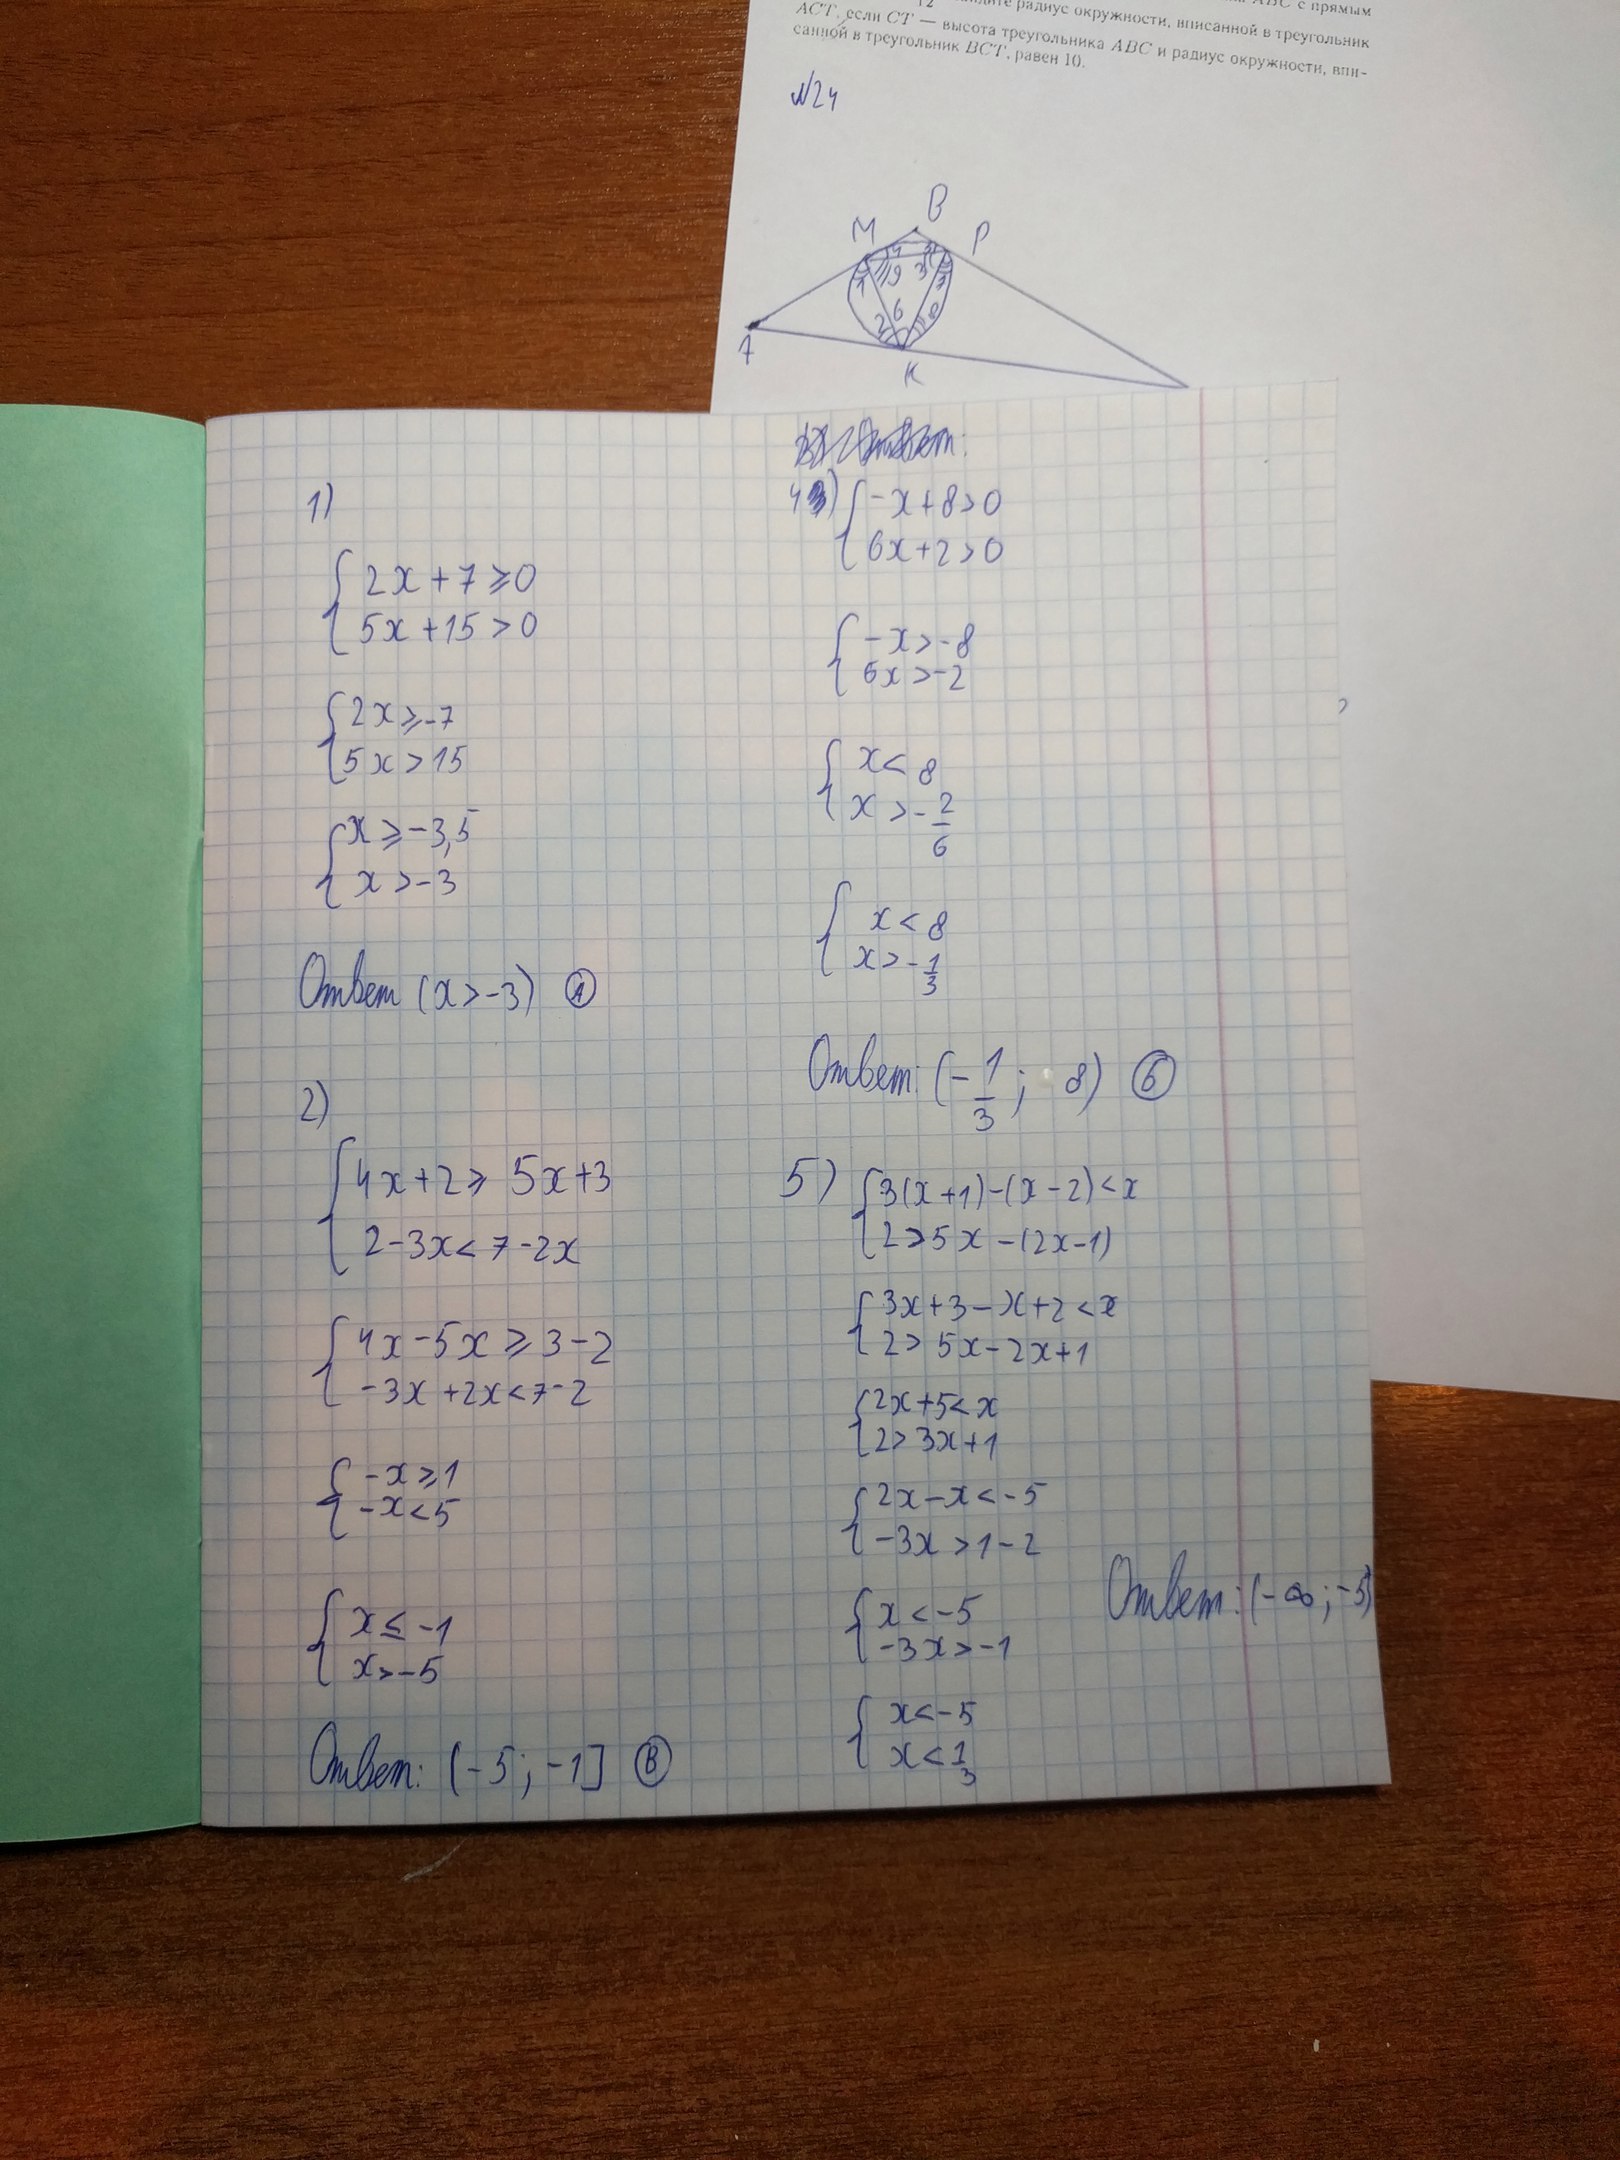 ABC с прямым
12
радиус окружности, вписанной в треугольник
ACT, если CT — высота треугольника ABC и радиус окружности, впи-
санной в треугольник BCT, равен 10.
N24
B
M
P
A
K
1)
2x+7≥0
5x+15>0
2x≥-7
5x>15
x≥-3,5
x>-3
Ответ (x>-3) А
2)
4x+2≥5x+3
2-3x<7-2x
4x-5x≥3-2
-3x+2x<7-2
-x≥1
-x<5
x≤-1
x>-5
Ответ: (-5; -1] В
4)
-x+8>0
6x+2>0
-x>-8
6x>-2
x<8
x>-2/6
x<8
x>-1/3
Ответ: (-1/3; 8) б
5)
3(x+1)-(x-2)<x
2>5x-(2x-1)
3x+3-x+2<x
2>5x-2x+1
2x+5<x
2>3x+1
2x-x<-5
-3x>1-2
x<-5
-3x>-1
x<-5
x<1/3
Ответ: (-∞; -5)